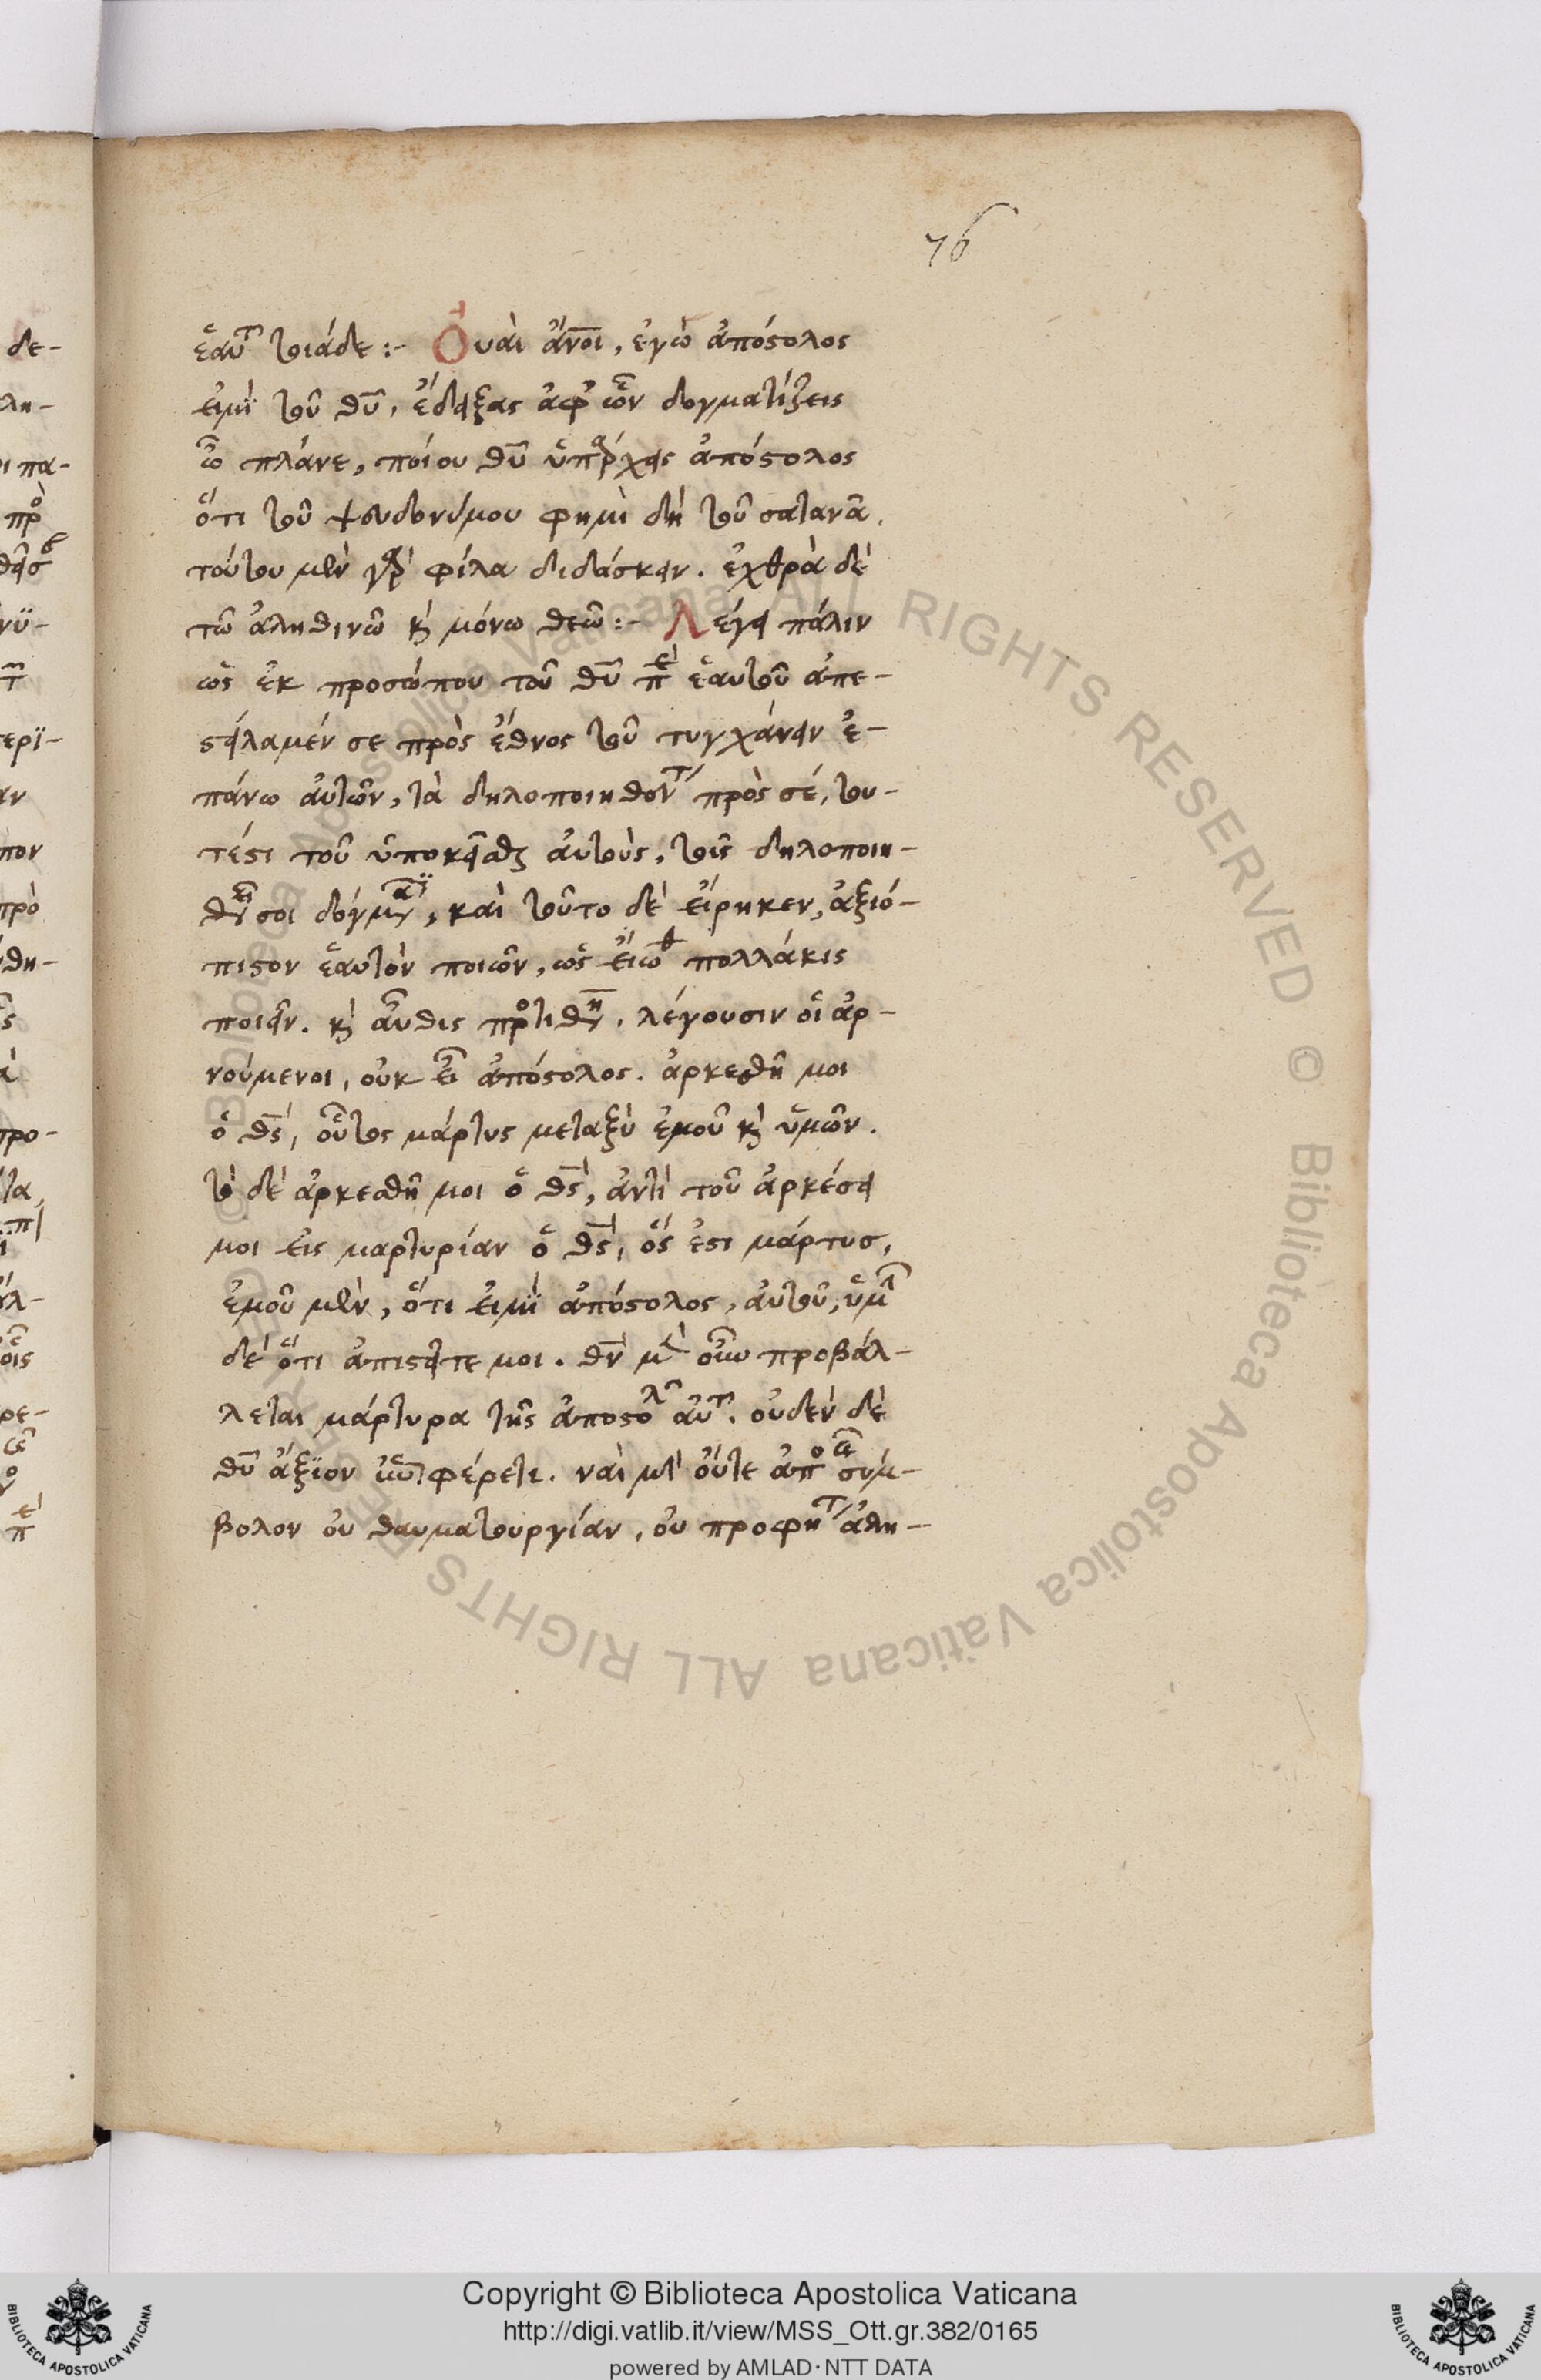 76
ἑαυτ τοιάδε :- Ὀυαὶ ἄνοι, ἐγὼ ἀπόστολος
εἰμὶ τοῦ θυ, ἔδειξας ἀφ' ὧν δογματίζεις
ὦ πλάνε, ποίου θυ ὑπάρχεις ἀπόστολος
ὅτι τοῦ ψευδονύμου φημὶ δὴ τοῦ σατανᾶ.
τούτου μὲν γὰρ φίλα διδάσκειν. ἐχθρὰ δὲ
τῶ ἀληθινῶ κ μόνω θεῶ :- Λέγει πάλιν
ὡς ἐκ προσώπου τοῦ θυ πὲ ἑαυτοῦ ἀπε-
στείλαμέν σε πρὸς ἔθνος τοῦ τυγχάνειν ἐ-
πάνω ἀυτῶν, τὰ δηλοποιηθοντ πρὸς σέ, του-
τέστι τοῦ ὑποκεῖσθαι ἀυτοὺς, τοῖς δηλοποιη-
θεῖσι σοι δόγμασϊ, καὶ τοῦτο δὲ εἴρηκεν, ἀξιό-
πιστον ἑαυτὸν ποιῶν, ὡς εἴωθ πολλάκις
ποιεῖν. κ αὖθις προτιθην. λέγουσιν οἱ ἀρ-
νούμενοι, οὐκ εἶ ἀπόστολος. ἀρκεσθῆ μοι
ὁ θς, οὗτος μάρτυς μεταξὺ ἐμοῦ κ ὑμῶν.
τὸ δὲ ἀρκεσθῆ μοι ὁ θς, ἀντὶ τοῦ ἀρκέσει
μοι εἰς μαρτυρίαν ὁ θς, ὅς ἐστι μάρτυσ,
ἐμοῦ μὲν, ὅτι εἰμὶ ἀπόστολος, ἀυτοῦ, ὑμ
δὲ ὅτι ἀπιστεῖτε μοι. θν μὲν οὕτω προβάλ-
λεται μάρτυρα τῆς ἀποστολ αὐτ. οὐδὲν δὲ
θυ ἄξϊον φέρετε. ναὶ μὴ οὔτε ἀπὸ σύμ-
βολον οὐ θαυματουργίαν, οὐ προφητ ἀλη-
Copyright © Biblioteca Apostolica Vaticana
http://digi.vatlib.it/view/MSS_Ott.gr.382/0165
powered by AMLAD·NTT DATA
BIBLIOTECA APOSTOLICA VATICANA
BIBLIOTECA APOSTOLICA VATICANA
© Biblioteca Apostolica Vaticana ALL RIGHTS RESERVED © Biblioteca Apostolica Vaticana ALL RIGHTS RESERVED